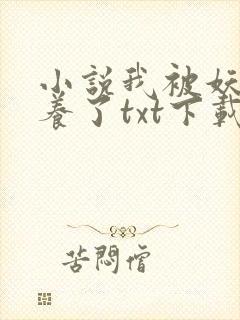 小説我被妖
養了txt下載
苦悶僧